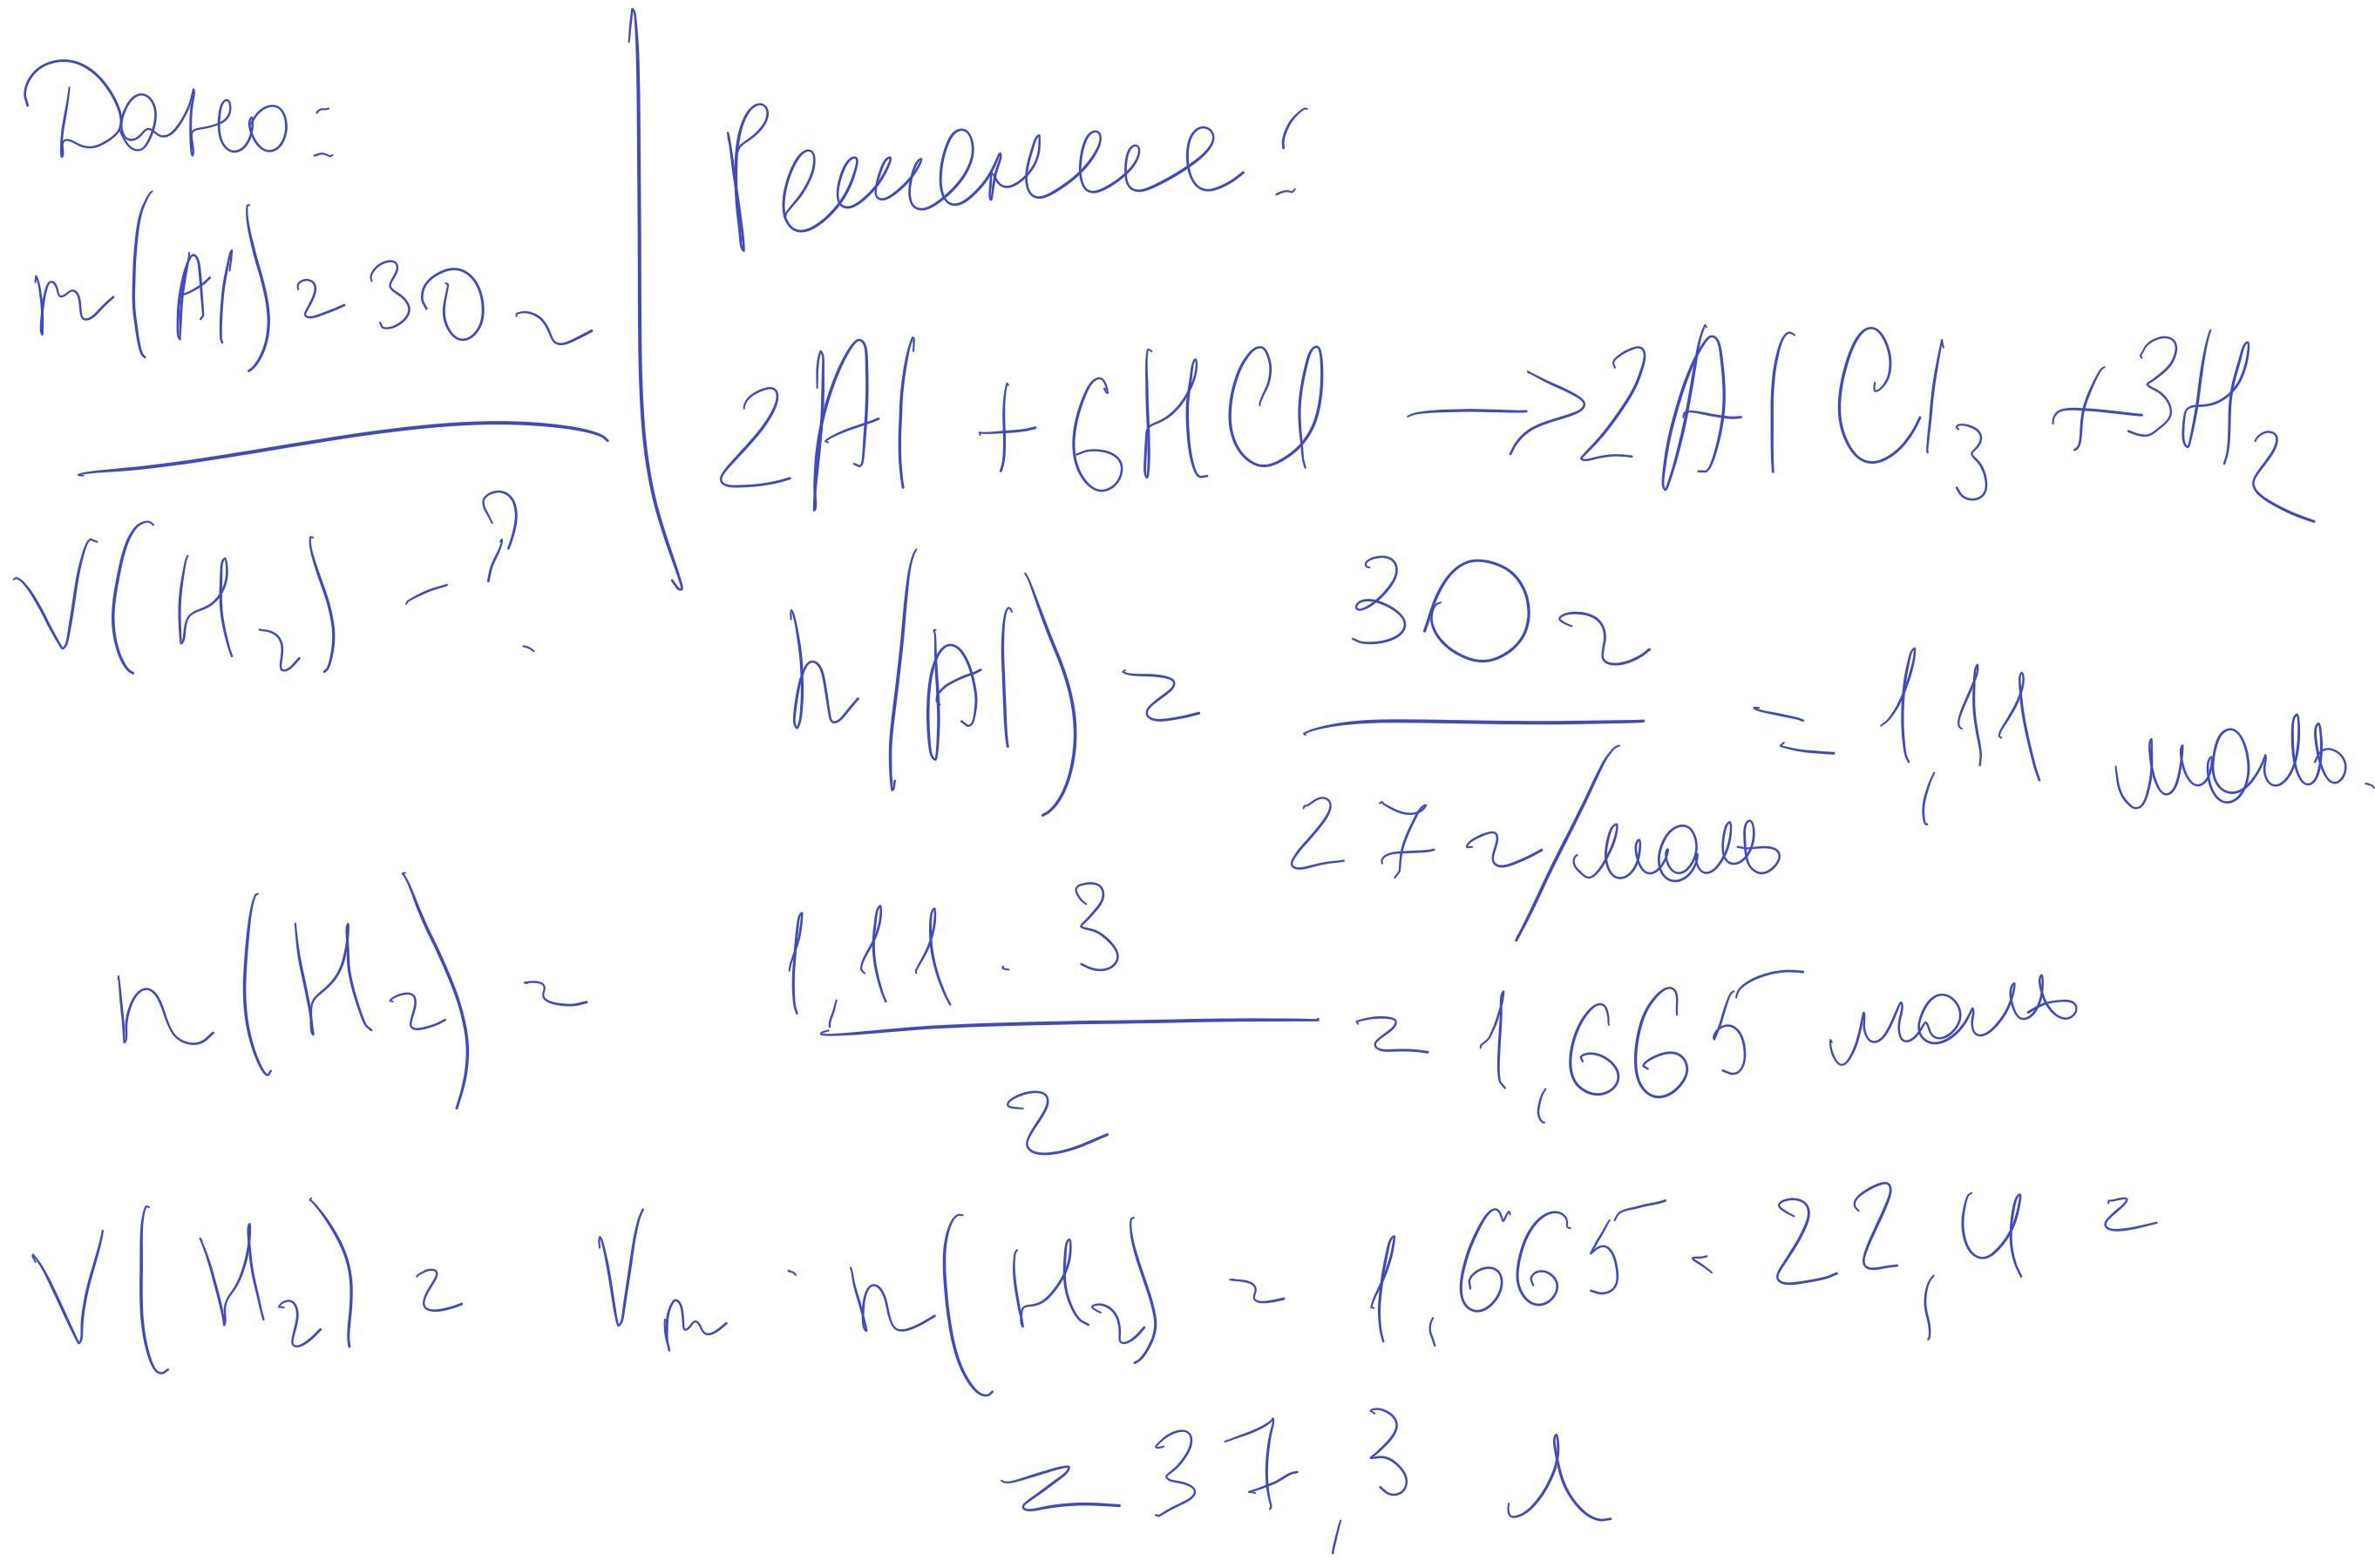 Дано:
m(Al) = 30 г
V(H2) - ?
Решение:
2Al + 6HCl → 2AlCl3 + 3H2
n(Al) = 30 г / 27 г/моль = 1,11 моль.
n(H2) = 1,11 · 3 / 2 = 1,665 моль
V(H2) = Vm · n(H2) = 1,665 · 22,4 =
= 37,3 л